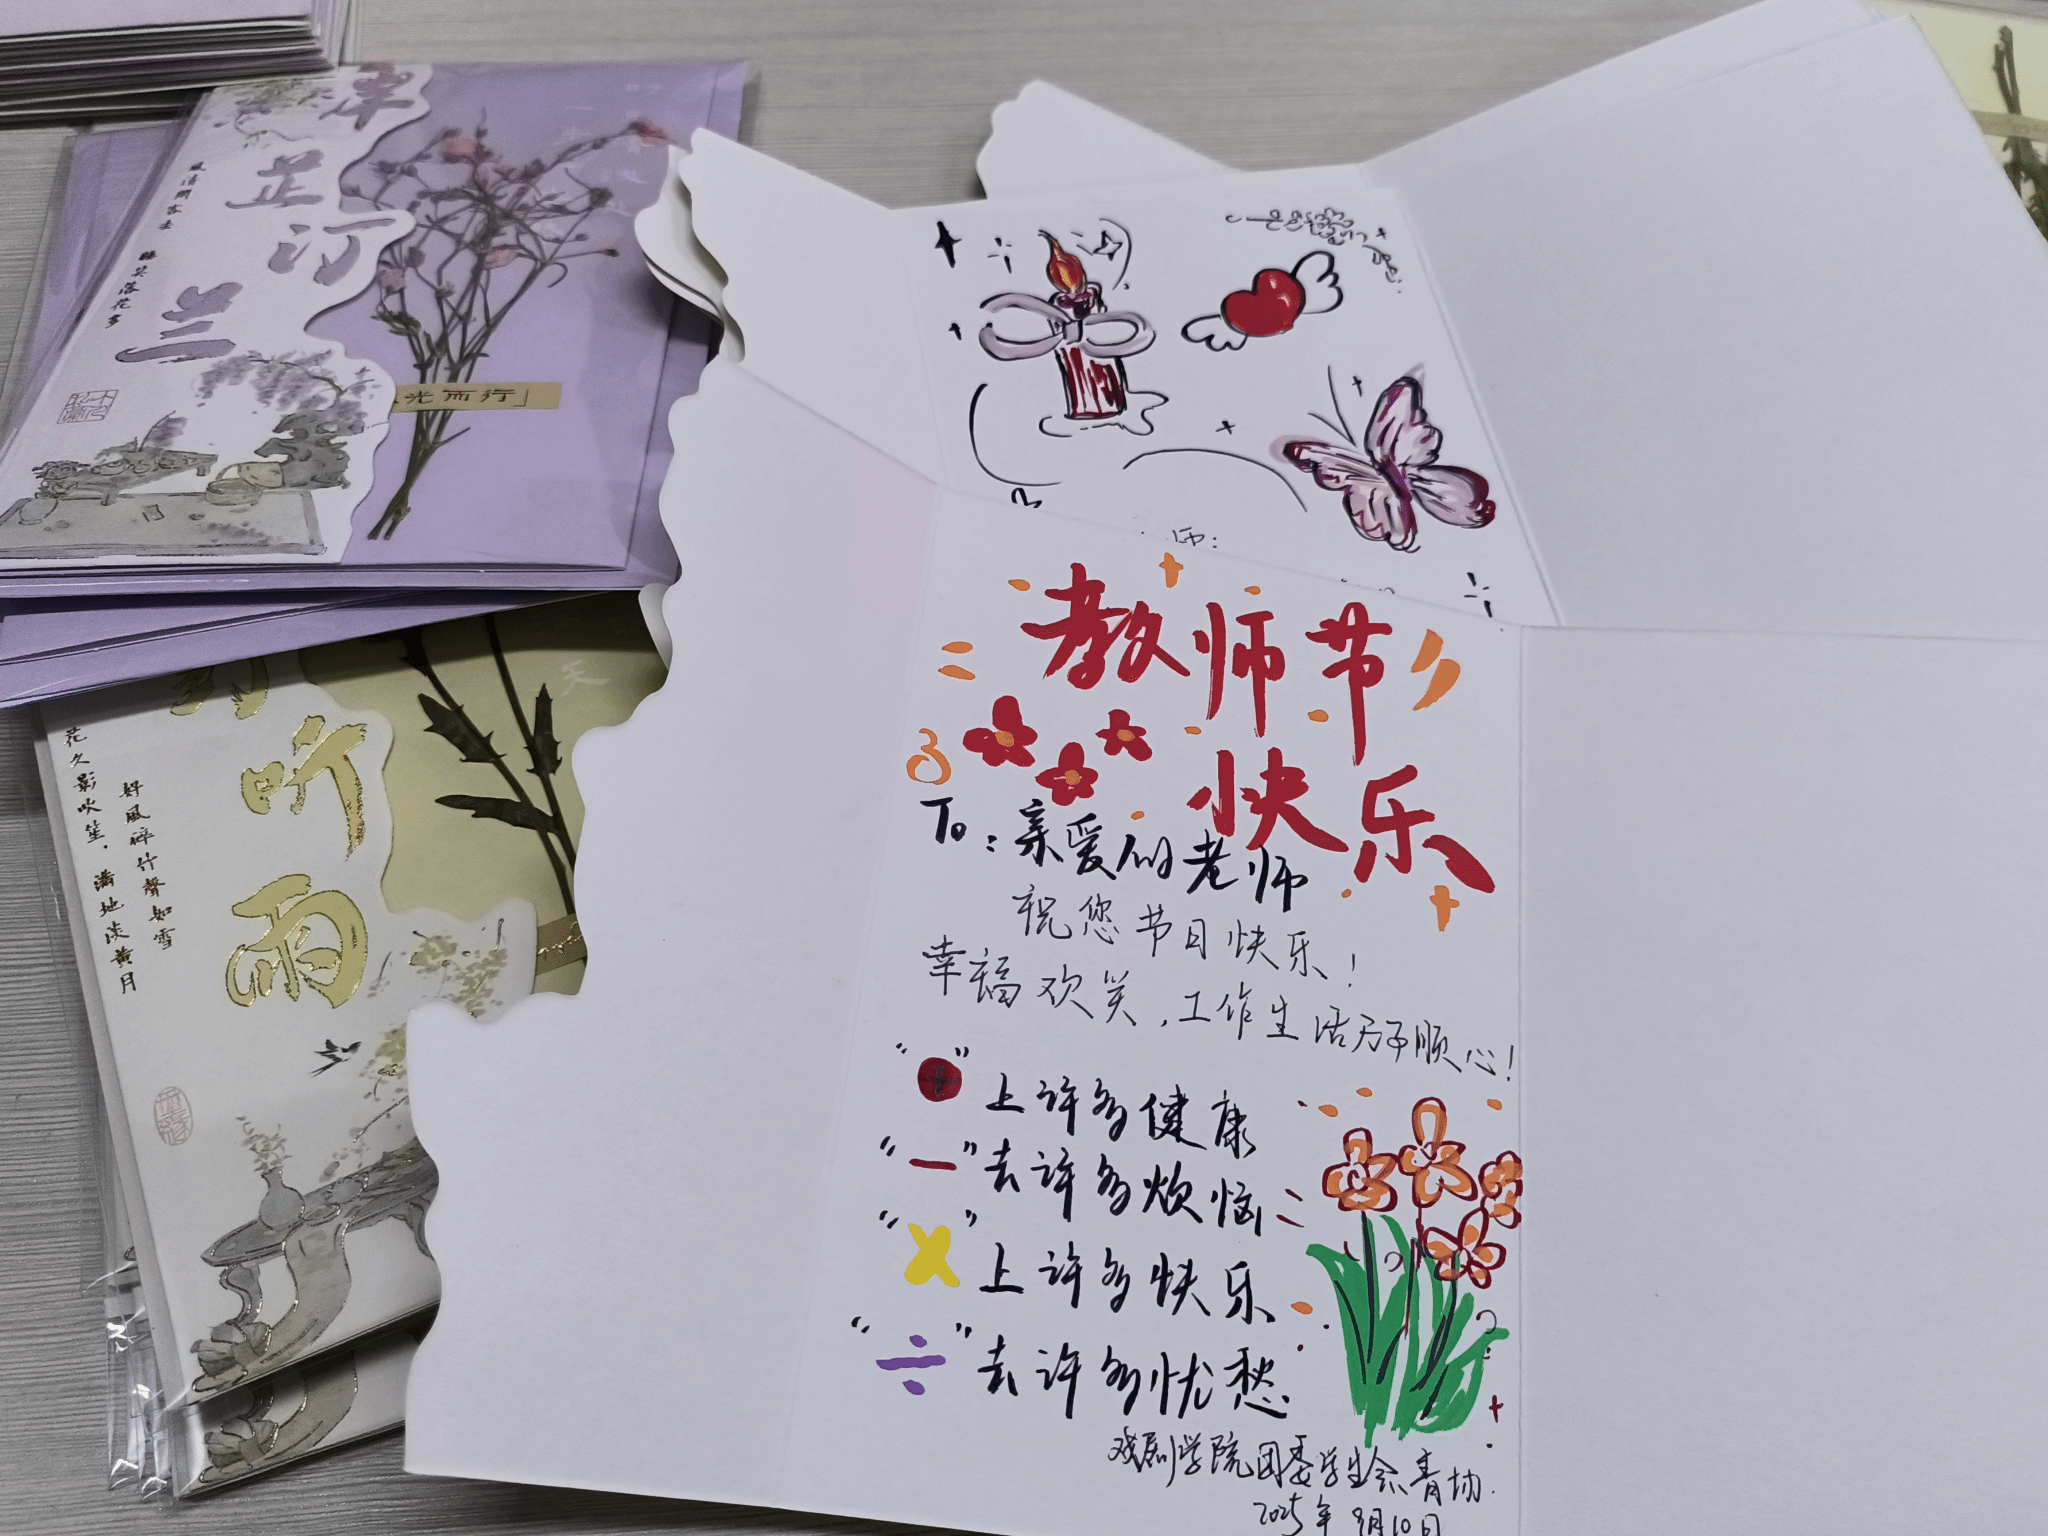 岸
芷
汀
兰
风清闲客去
睡英落花多
光而行」
天
听
雨
花久影吹笙,满地淡黄月
好風碎竹聲如雪
师:
教师节
快乐
To:亲爱的老师
祝您节日快乐!
幸福欢笑,工作生活万事顺心!
“+”上许多健康
“—”去许多烦恼
“×”上许多快乐
“÷”去许多忧愁
戏剧学院团委学生会青协
2025年9月10日